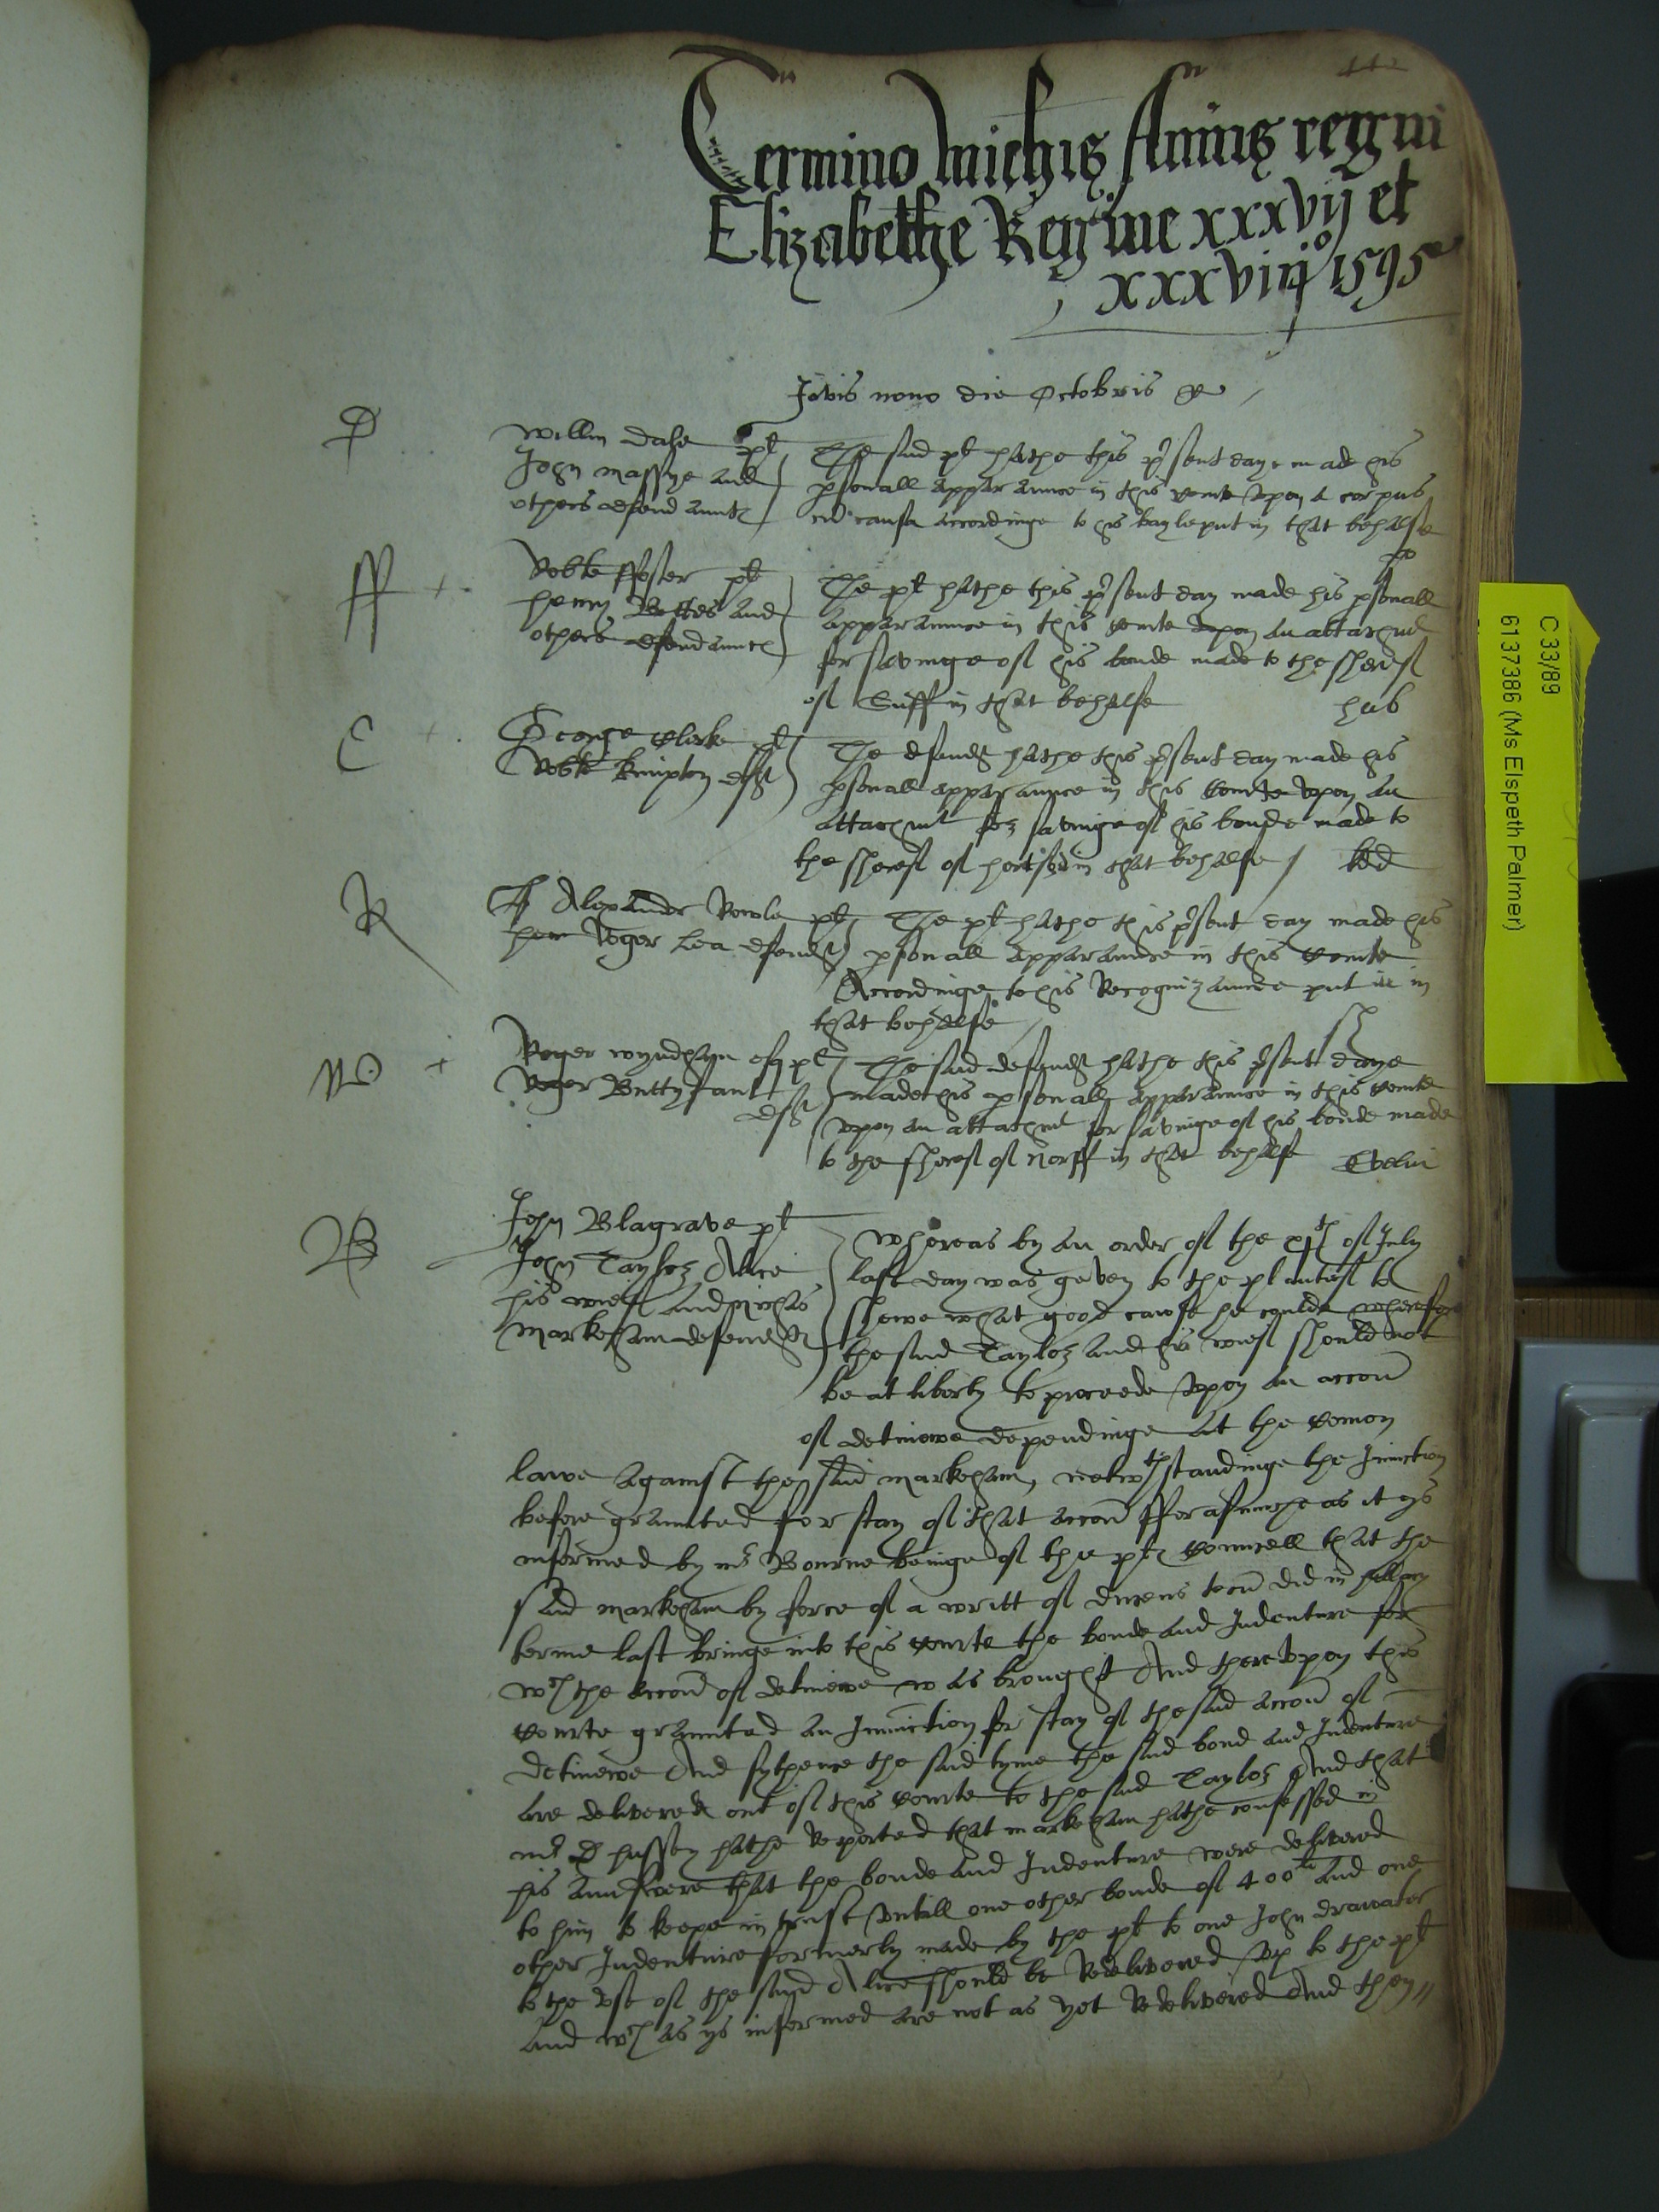 Termino Michis Annis regni
Elizabethe Regine xxxvij et
xxxviijo 1595
Jovis nono die Octobris
D
Willm Dale plt
John Massye and
others defendauntes
The said plt hathe this psent daye made his
psonall apparaunce in this Courte vpon a corpus
cu causa accordinge to his bayle put in that behalfe
ff +
Robte ffoster plt
henry Bettes and
others defendauntes
The plt hathe this psent day made his psonall
apparaunce in this Courte vpon an attachmt
for savinge of his bonde made to the Sherif
of Suff in that behalfe
C +
George Clerke plt
Robte Kimpton deft
The defendt hathe this psent day made his
psonall apparaunce in this Courte vpon an
attachmt for savinge of his bonde made to
the Sheref of hertford in that behalfe
R
Alexander Rowle plt
Roger Lea defendt
The plt hathe this psent day made his
psonall apparaunce in this Courte
Accordinge to his Recognizaunce put in
that behalfe
W +
Roger Wyndham esq plt
Roger Buttyfant
deft
The said defendt hathe this psent daye
made his psonall apparaunce in this Courte
vpon an attachmt for savinge of his bonde made
to the Sheref of Norff in that behalfe Evelin
B
John Blagrave plt
John Taylor Alice
his wief and Richas
Markeham defendtes
Whereas by an order of the xjth of July
last day was geven to the plantief to
shewe what good cawse he coulde wherefore
the said Taylor and his wief should not
be at liberty to proceede vpon an accon
of detinewe dependinge at the Comon
lawe against the said Markeham, notwthstandinge the Iniunction
before graunted for stay of that accon fforasmuche as it ys
informed by mr Bourne beinge of the pltes Councell that the
said Markeham by force of a writt of ducens tecu did in hillary
terme last bringe into this Courte the bonde and Indenture for
wch the accon of detinewe was brought And therevpon this
Courte graunted an Iniunction for stay of the said accon of
detinewe And sythence the said tyme the said bond and Indenture
are delivered out of this Courte to the said Taylor And that
mr D hussey hathe Reported that markeham hathe confessed in
his aunswere that the bonde and Indenture were delivered
to him to keepe in trust vntill one other bonde of 400li and one
other Indenture formerly made by the plt to one John Drawater
to the vse of the said Alice should be Redelivered vp to the plt
and wch as ys informed are not as yet Redelivered And then
C 33/89
6137386 (Ms Elspeth Palmer)